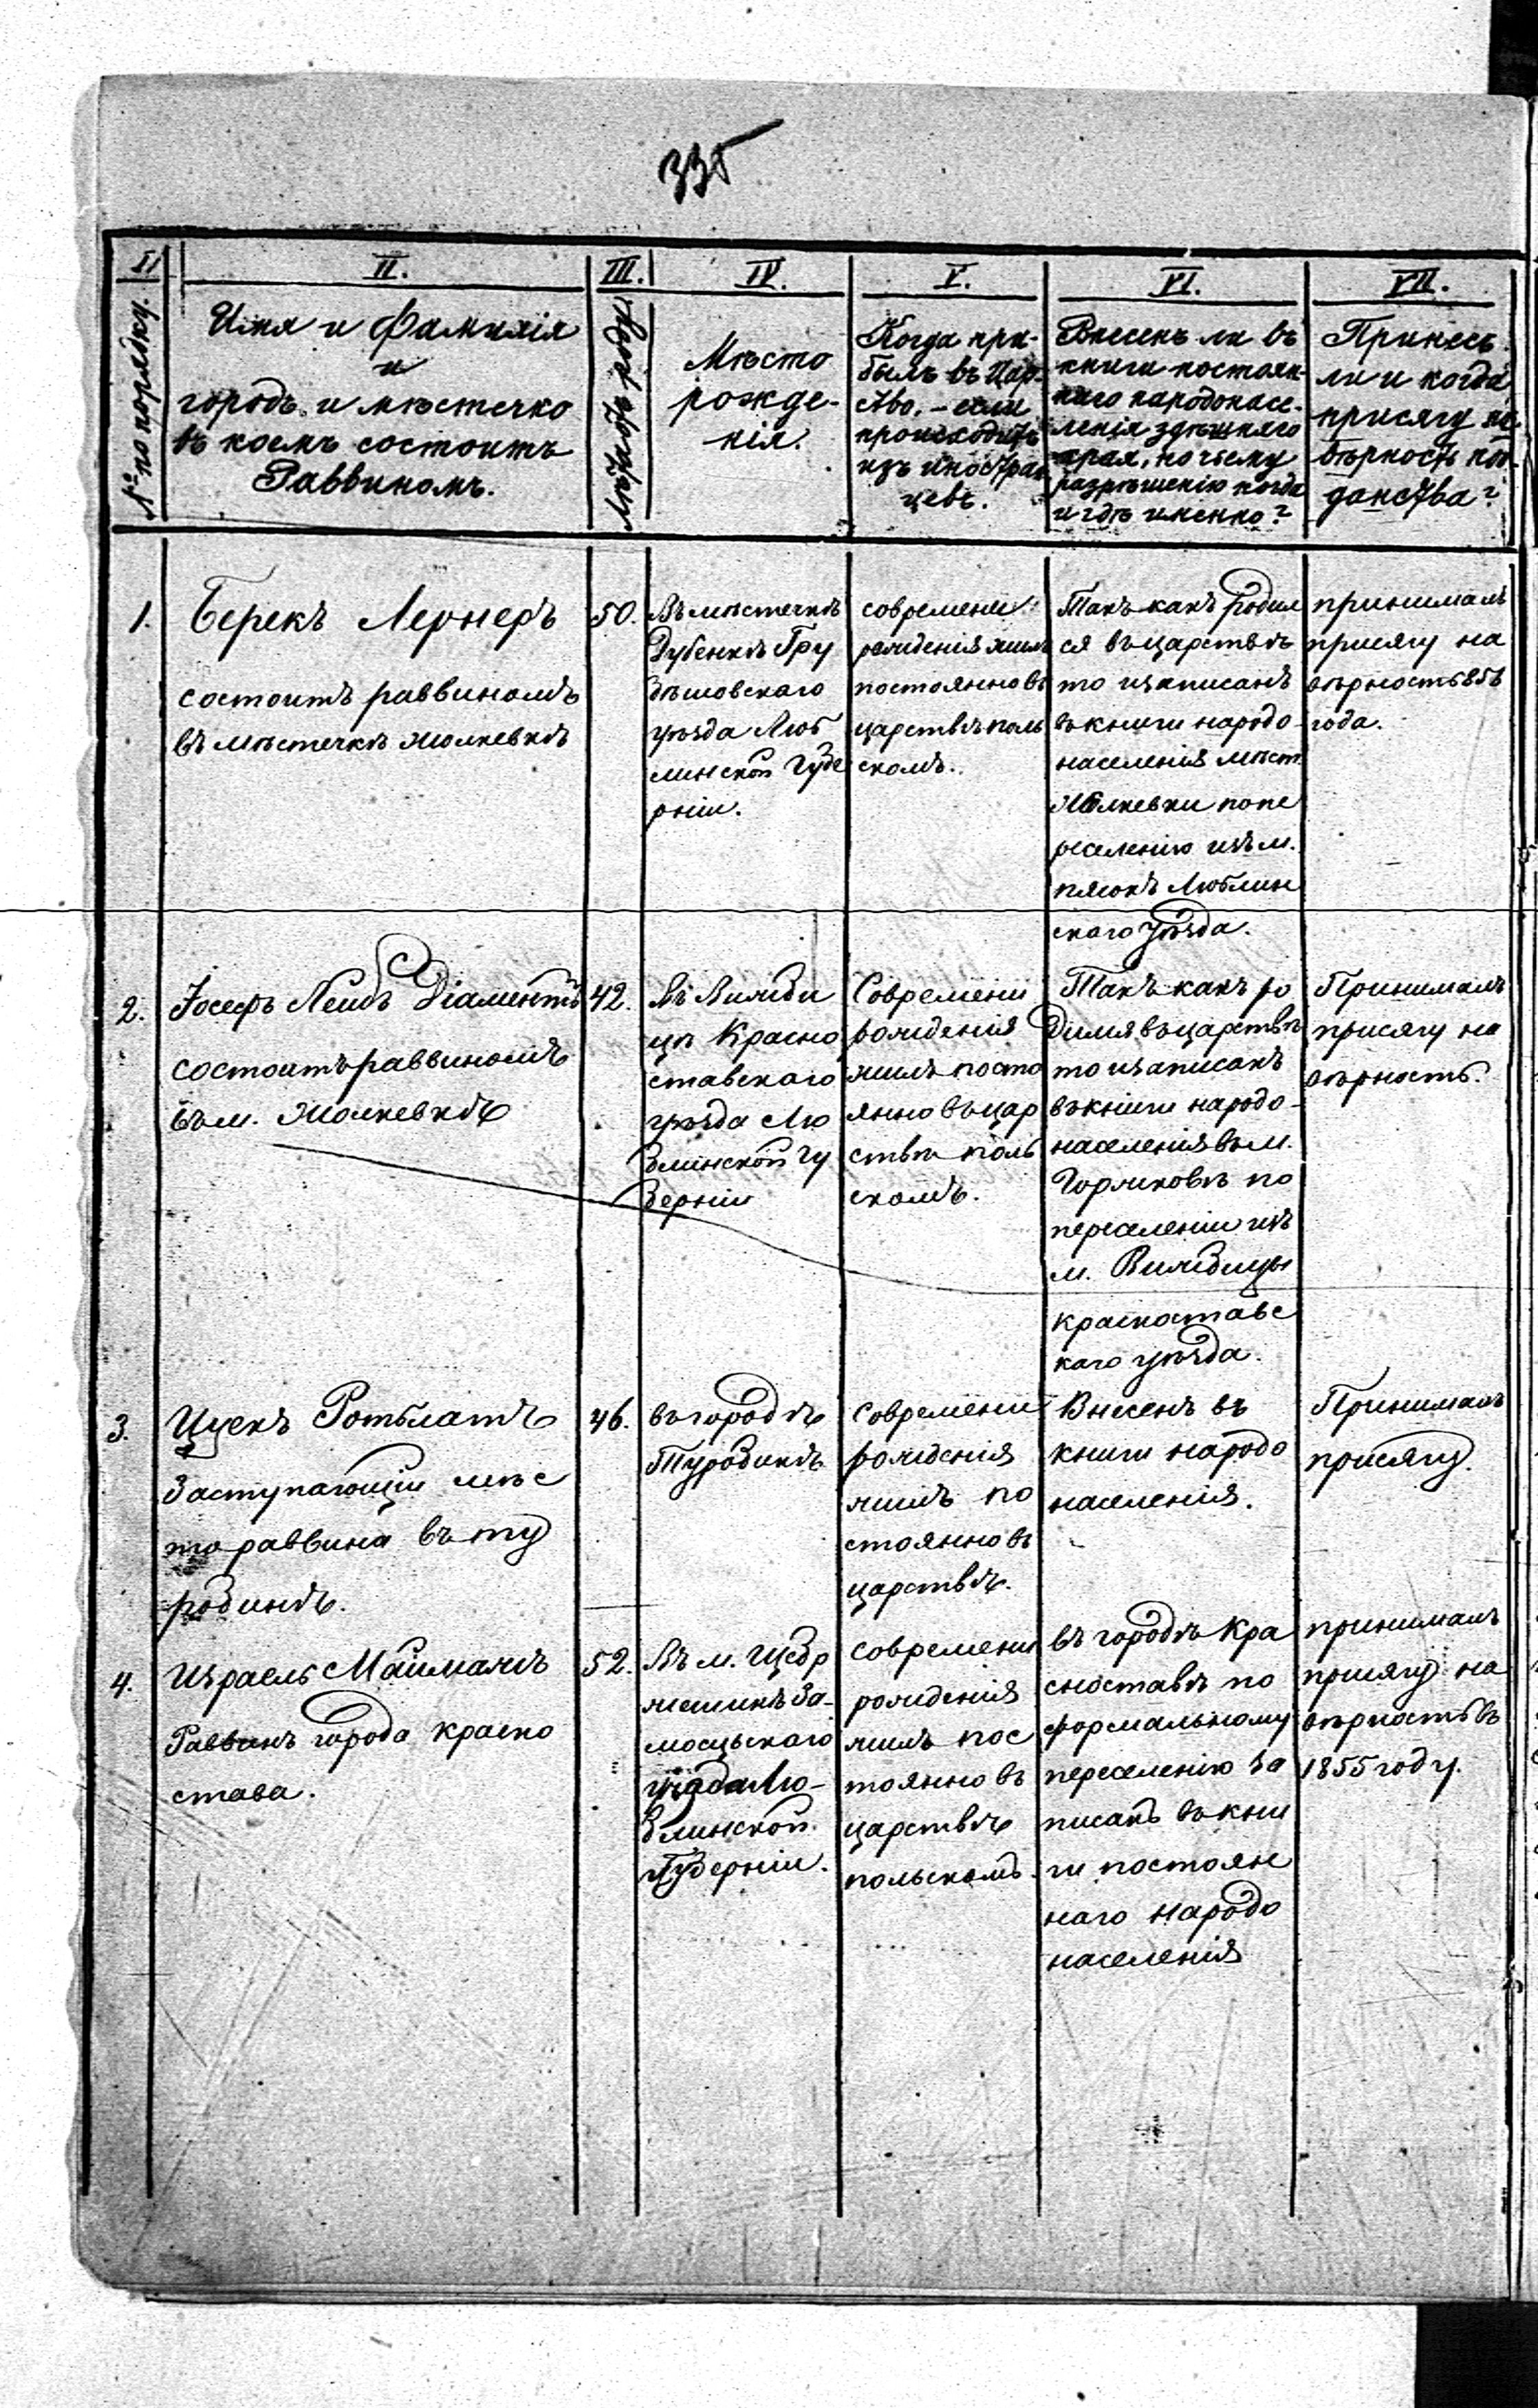 335
I
II.
III.
IV.
V.
VI.
VII.
№ по порядку.
Имя и Фамилія
и
городъ и мѣстечко
въ коемъ состоитъ
Раввиномъ.
Мѣсто
рожде-
нія.
Когда при-
былъ въ Цар-
ство, – если
происходитъ
изъ иностран
цевъ.
Внесенъ ли въ
книги постоян-
наго народонасе-
ленія здѣшняго
края, по чьему
разрѣшенію когда
и гдѣ именно?
Принесъ
ли и когда
присягу на
вѣрность под-
данства?
1.
Берекъ Лернеръ
состоитъ раввиномъ
въ мѣстечкѣ Жолкевкѣ
50.
Въ мѣстечкѣ
Дубенкѣ Гру
бѣшовскаго
уѣзда Люб
линской Губе
рніи.
современи
рожденія жилъ
постоянно въ
царствѣ поль
скомъ.
Такъ какъ родил
ся въ царствѣ
то и записанъ
въ книги народо-
населенія мѣст.
Жолкевки попе
реселенію изъ м.
пяскъ Люблин
скаго уѣзда.
принималъ
присягу на
вѣрность
года.
2.
Іосефъ Лейбъ Діаментъ
состоитъ раввиномъ
въ м. Жолкевкѣ
42.
Въ
цѣ Красно
ставскаго
уѣзда Лю
блинской гу
берніи
Современи
рожденія
жилъ посто
янно въ цар
ствѣ поль
скомъ.
Такъ какъ ро
дился въ царствѣ
то и записанъ
въ книги народо-
населенія въ м.
Горжковѣ по
переселеніи изъ
м.
красностaвс
каго уѣзда.
Принималъ
присягу на
вѣрность.
3.
Ицекъ Ротблатъ
Заступающій мѣс
то раввина въ ту
робинѣ.
46.
въ городѣ
Туробинѣ
Современи
рожденія
жилъ по
стоянно въ
царствѣ.
Внесенъ въ
книги народо
населенія.
Принималъ
присягу.
4.
Израель Майманъ
Раввинъ города красно
става.
52.
Въ м. Щебр
жешинѣ За-
мосцьскаго
уѣзда Лю-
блинской
Губерніи.
современи
рожденія
жилъ пос
тоянно въ
царствѣ
польскомъ.
въ городѣ Кра
сноставѣ по
формальному
переселенію за
писанъ въ кни
ги постоян
наго народо
населенія
принималъ
присягу на
вѣрность въ
1855 году.